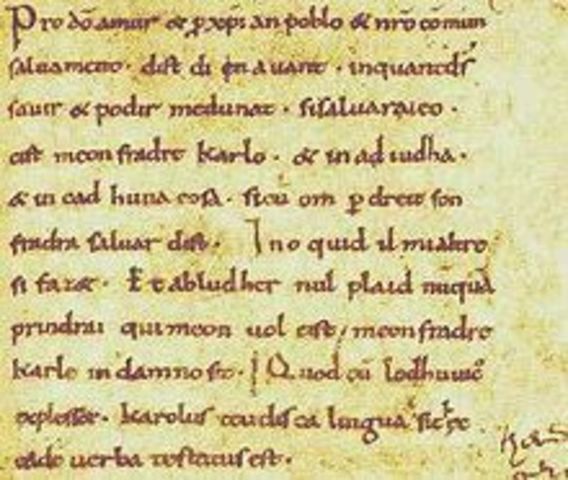 Pro dõ amur & p xpıan poblo & nrõ cõmun
saluament. dist di en auant. inquantds
sauir & podir medunat. sisaluaraieo.
cist meon fradre Karlo. & in ad iudha.
& in cad huna cosa. sicũ om p dreit son
fradra saluar dist. Ino quid il mialtre
si faz&. Et abludher nul plaid nũquã
prindrai qui meon uol cist meonfradre
Karle in damno sit. Quod cũ lodhuuic
explesset. Karolus teudisca lingua sic hec
eadē uerba testatus est.